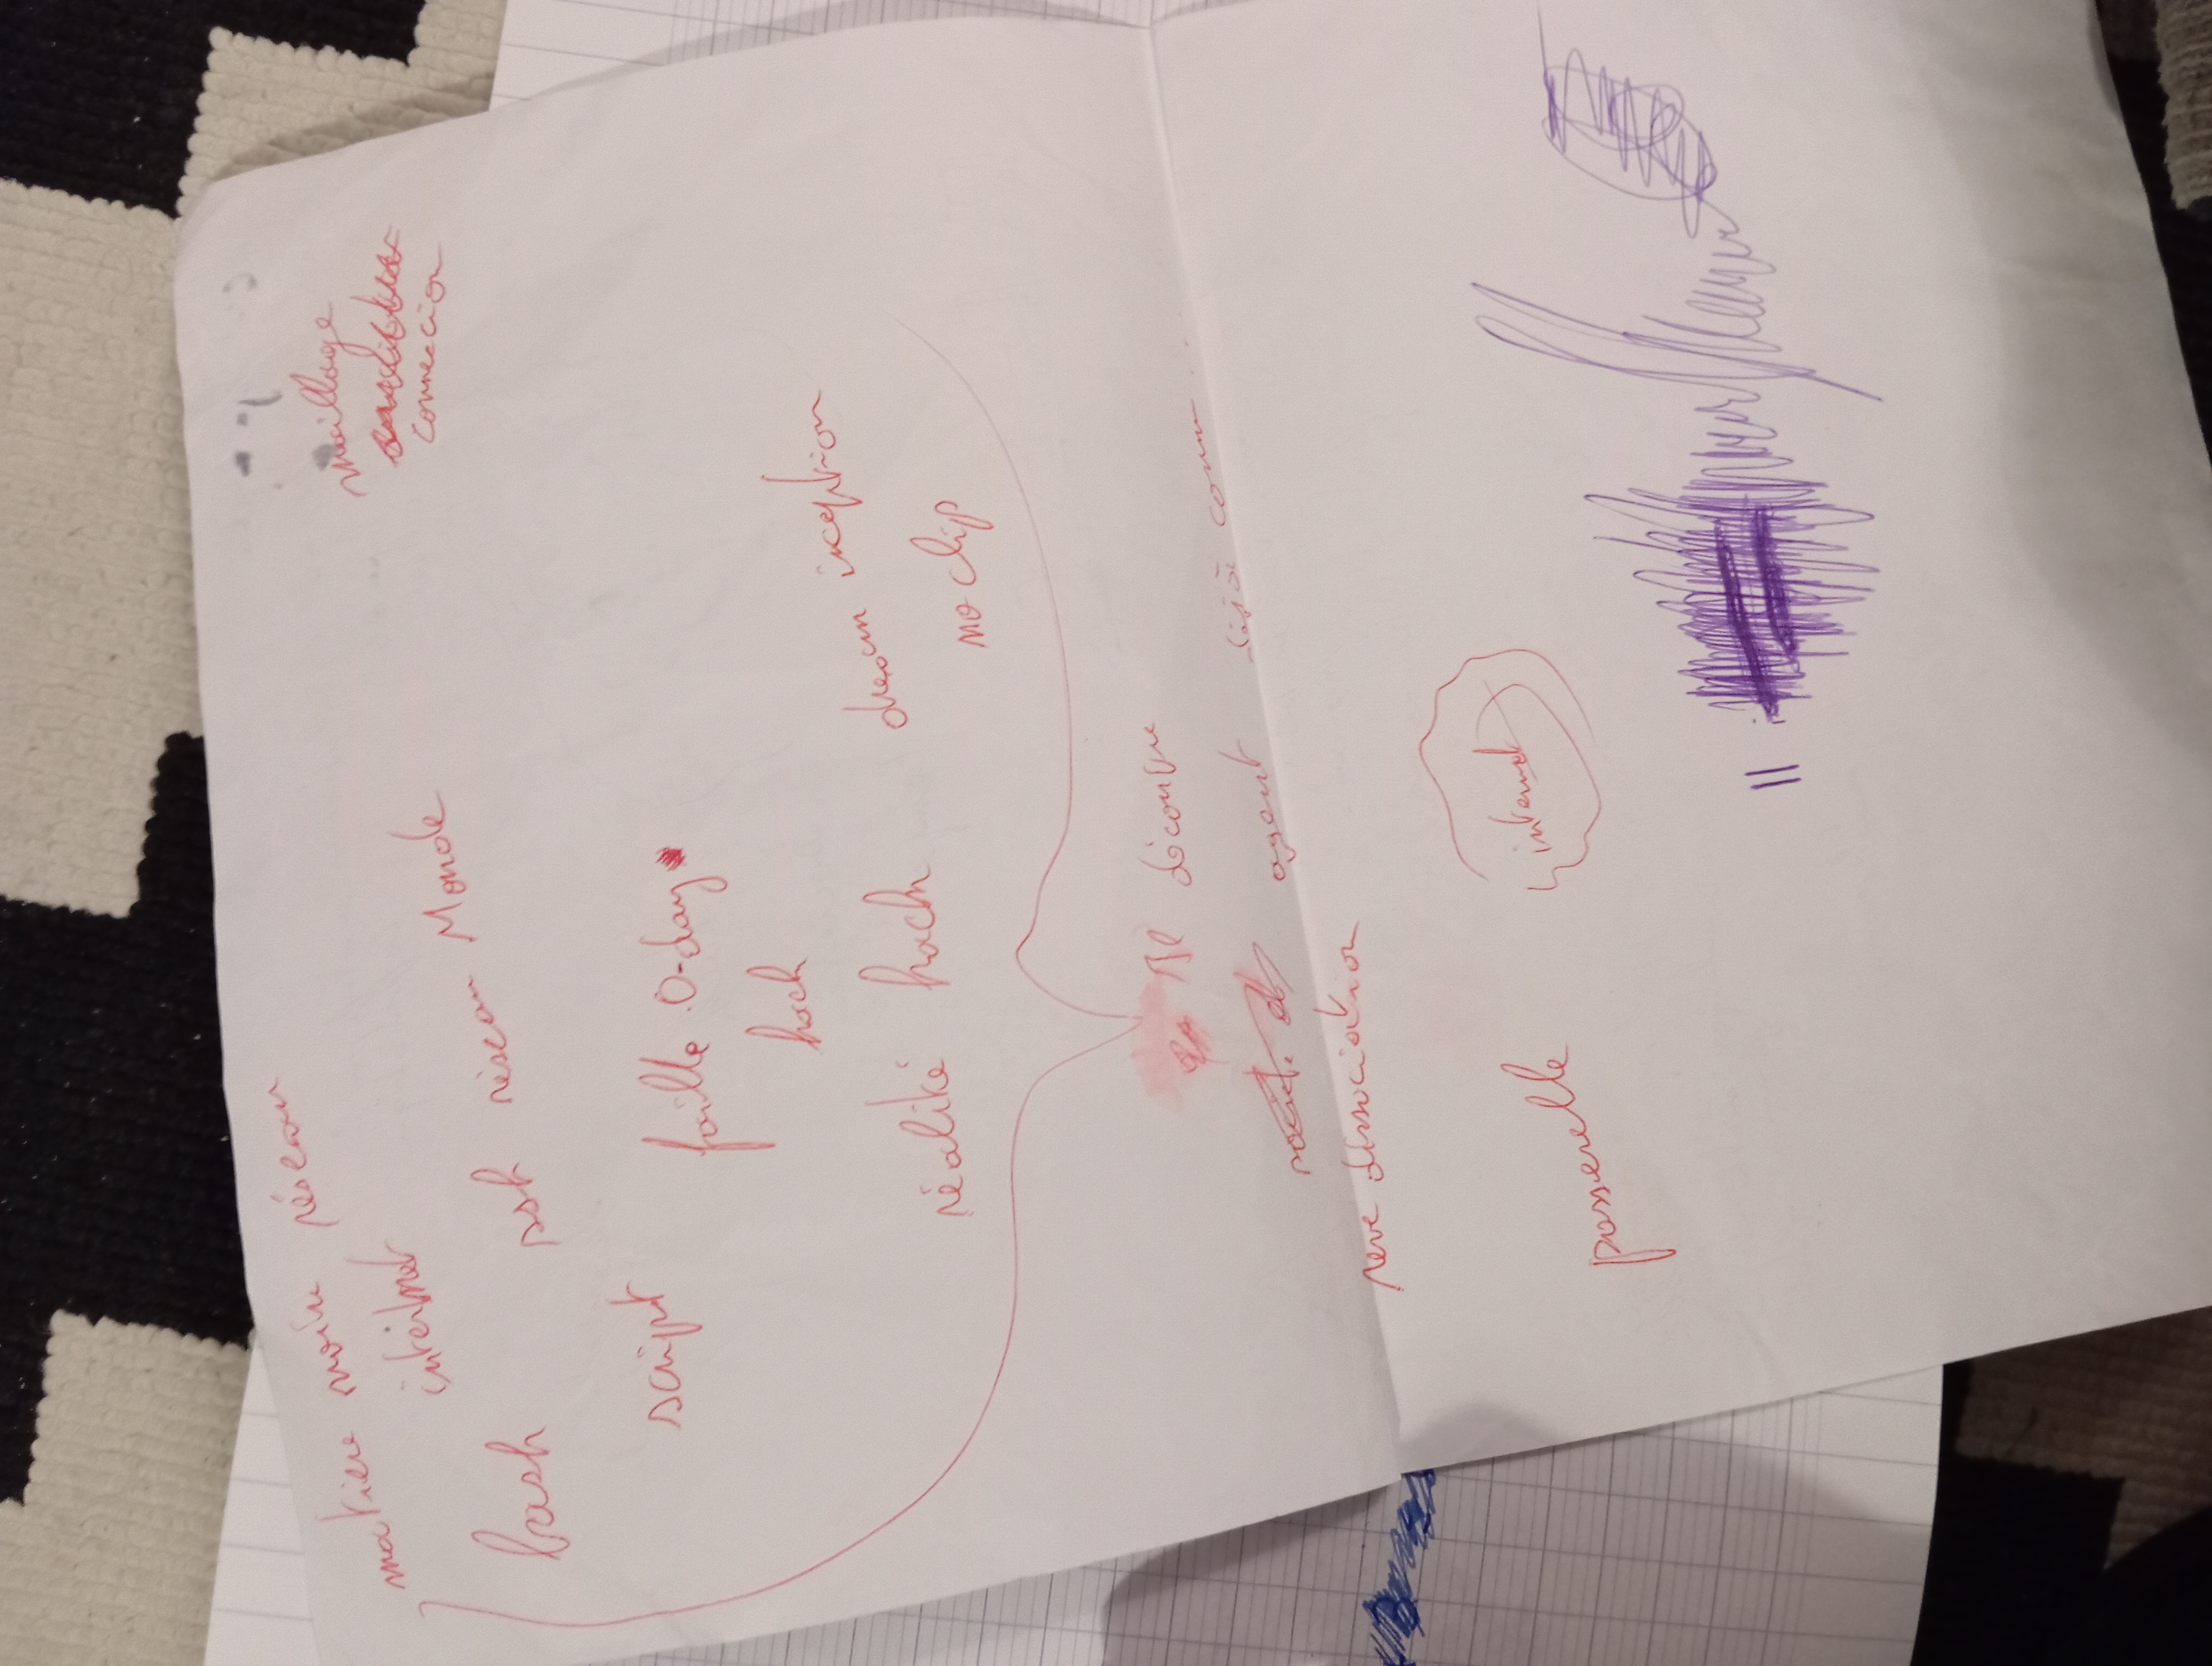 matiere noire réseau
internet
maillage
connecion
bash ssh réseau Monde
script
faille 0-day
hack
réalité hack dream inception
no clip
Il découvre
agent déjà connu ...
reve dissociation
passerelle internet